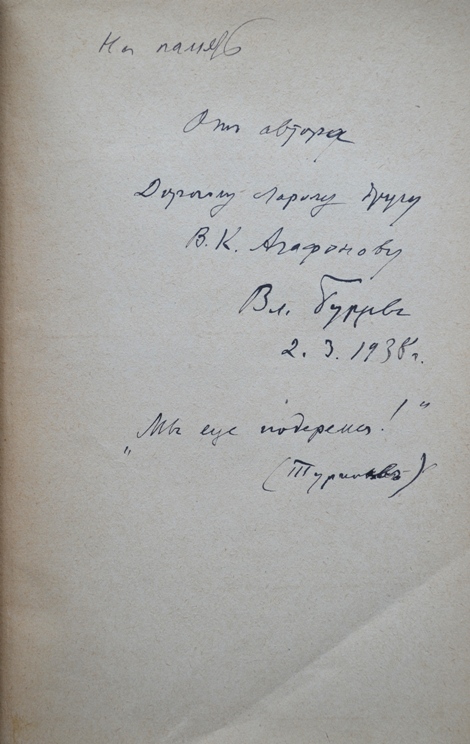 На память
Отъ автора
Дорогому старому другу
В. К. Агафонову
Вл. Бурцевъ
2. 3. 1938 г.
„Мы еще подеремся!“
(Тургеневъ)